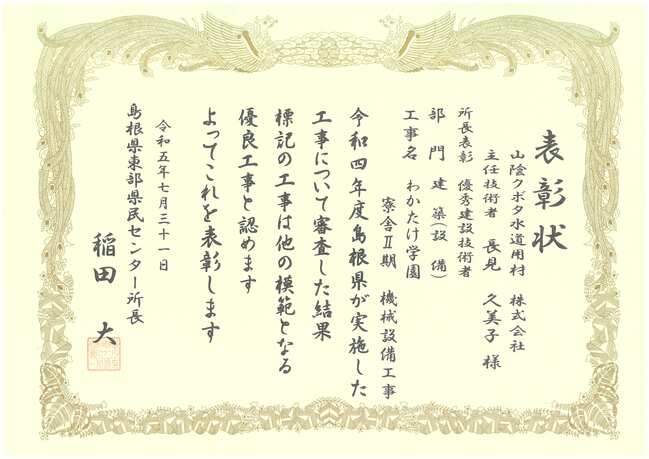 表彰状
山陰クボタ水道用材 株式会社
主任技術者 長見 久美子 様
所長表彰 優秀建設技術者
部門 建築(設備)
工事名 わかたけ学園
寮舎Ⅱ期 機械設備工事
令和四年度島根県が実施した
工事について審査した結果
標記の工事は他の模範となる
優良工事と認めます
よってこれを表彰します
令和五年七月三十一日
島根県東部県民センター所長
稲田 大